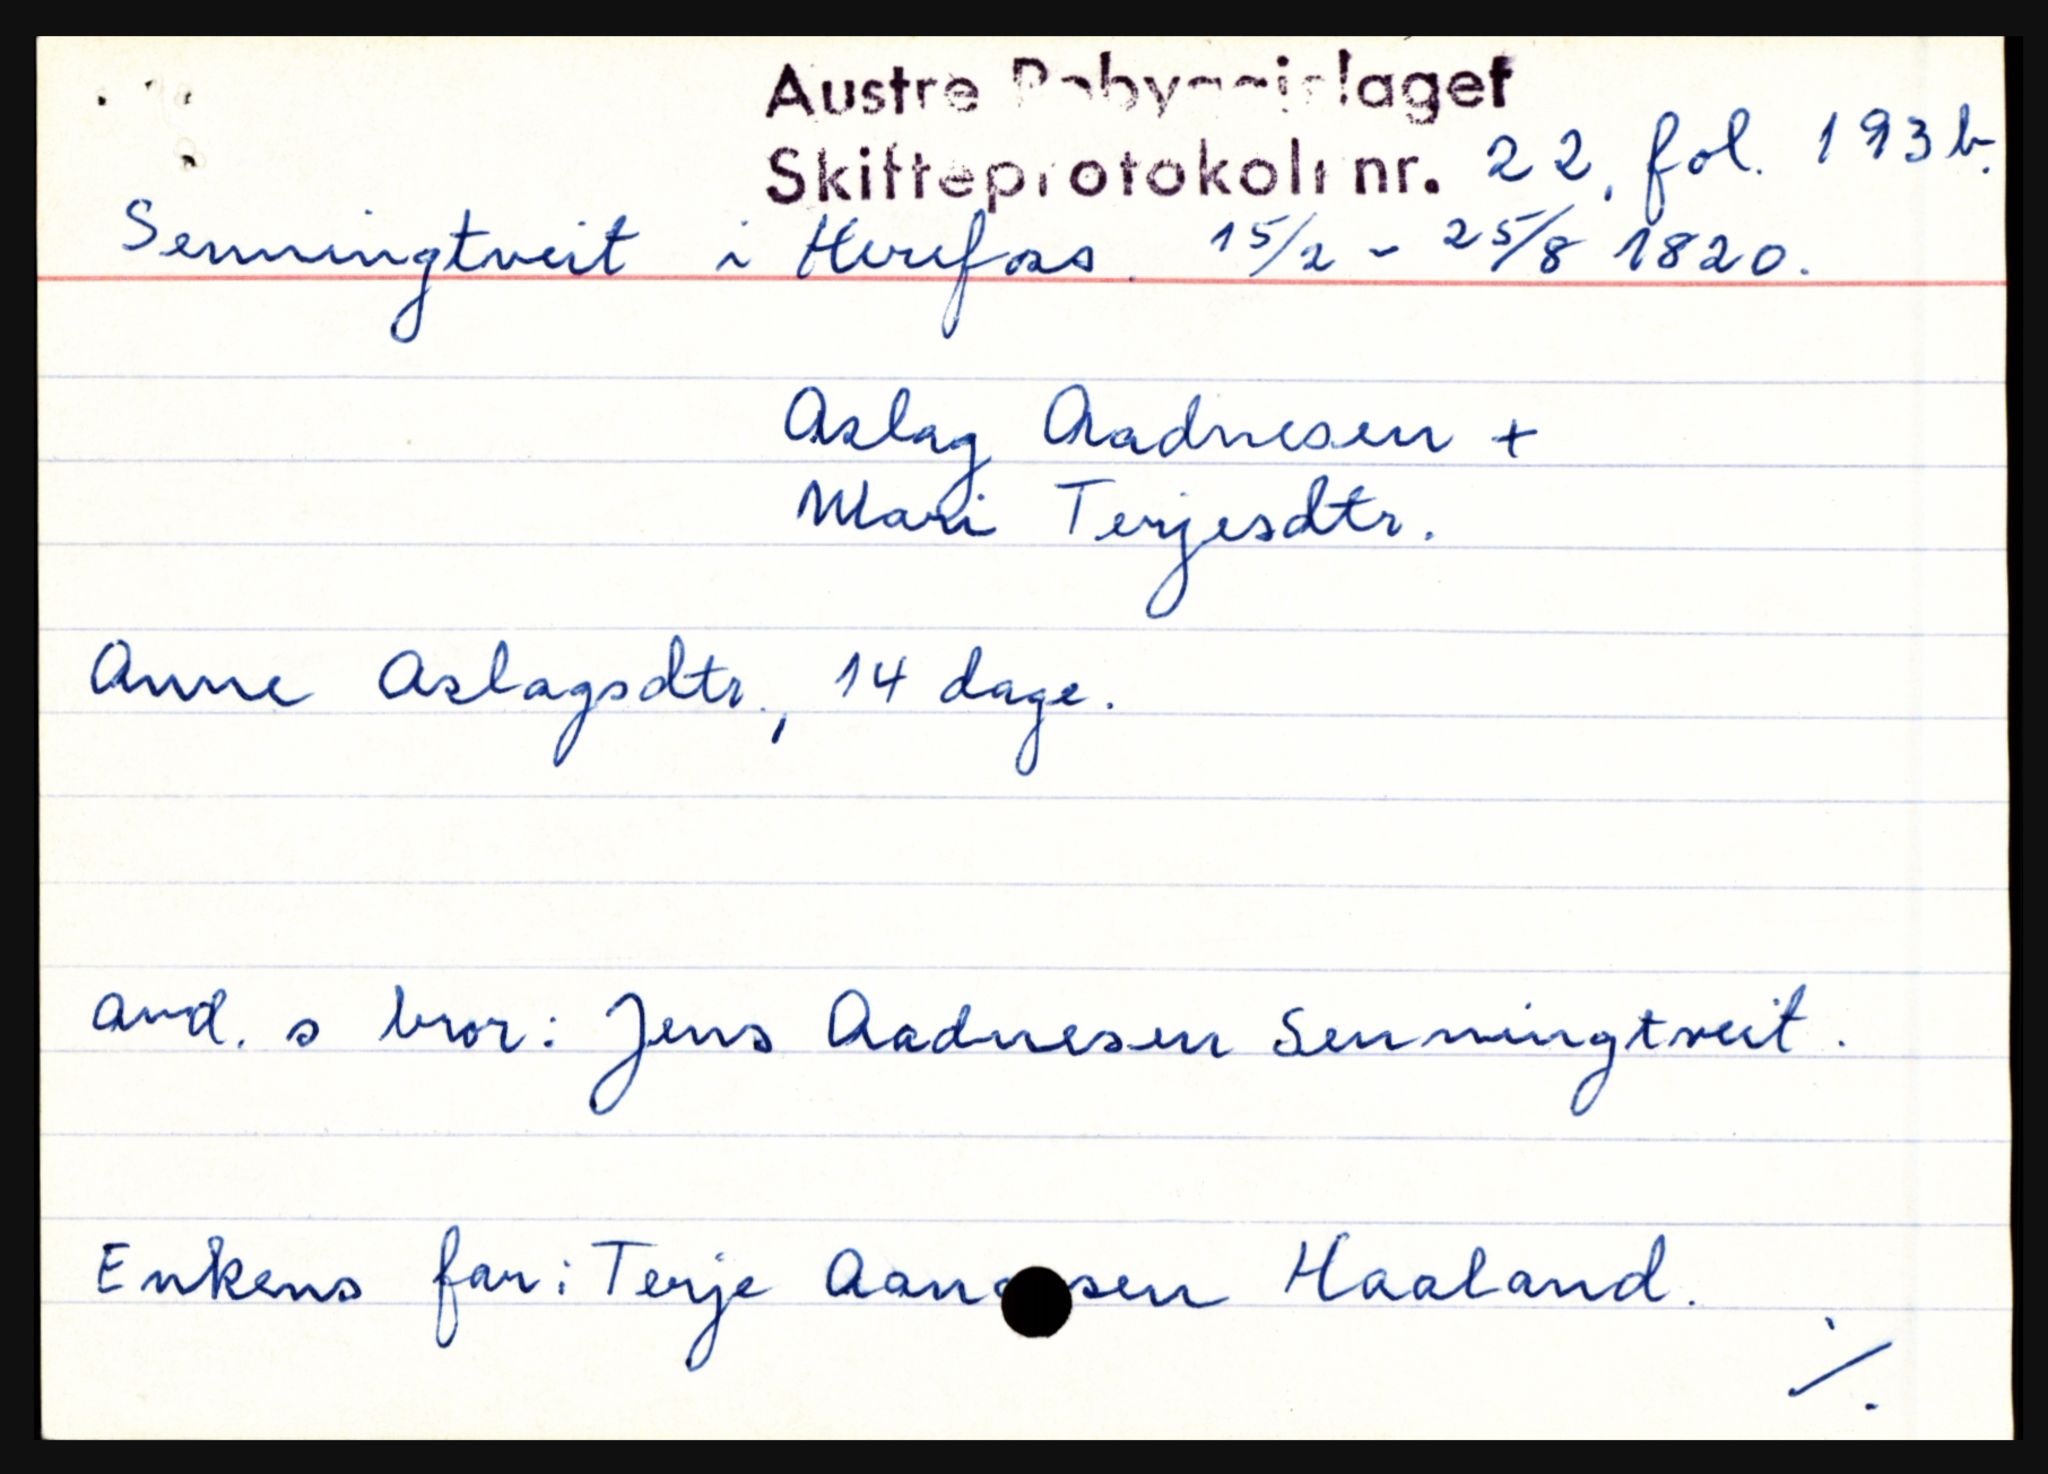 Austre Robyggjelaget
Skifteprotokoll nr. 22, fol. 193b.
Senningtveit i Herefoss. 15/2 - 25/8 1820.
Aslag Aadnesen +
Mari Terjesdtr.
Anne Aslagsdtr., 14 dage.
avd. s bror: Jens Aadnesen Senningtveit.
Enkens far: Terje Haaland.
./.